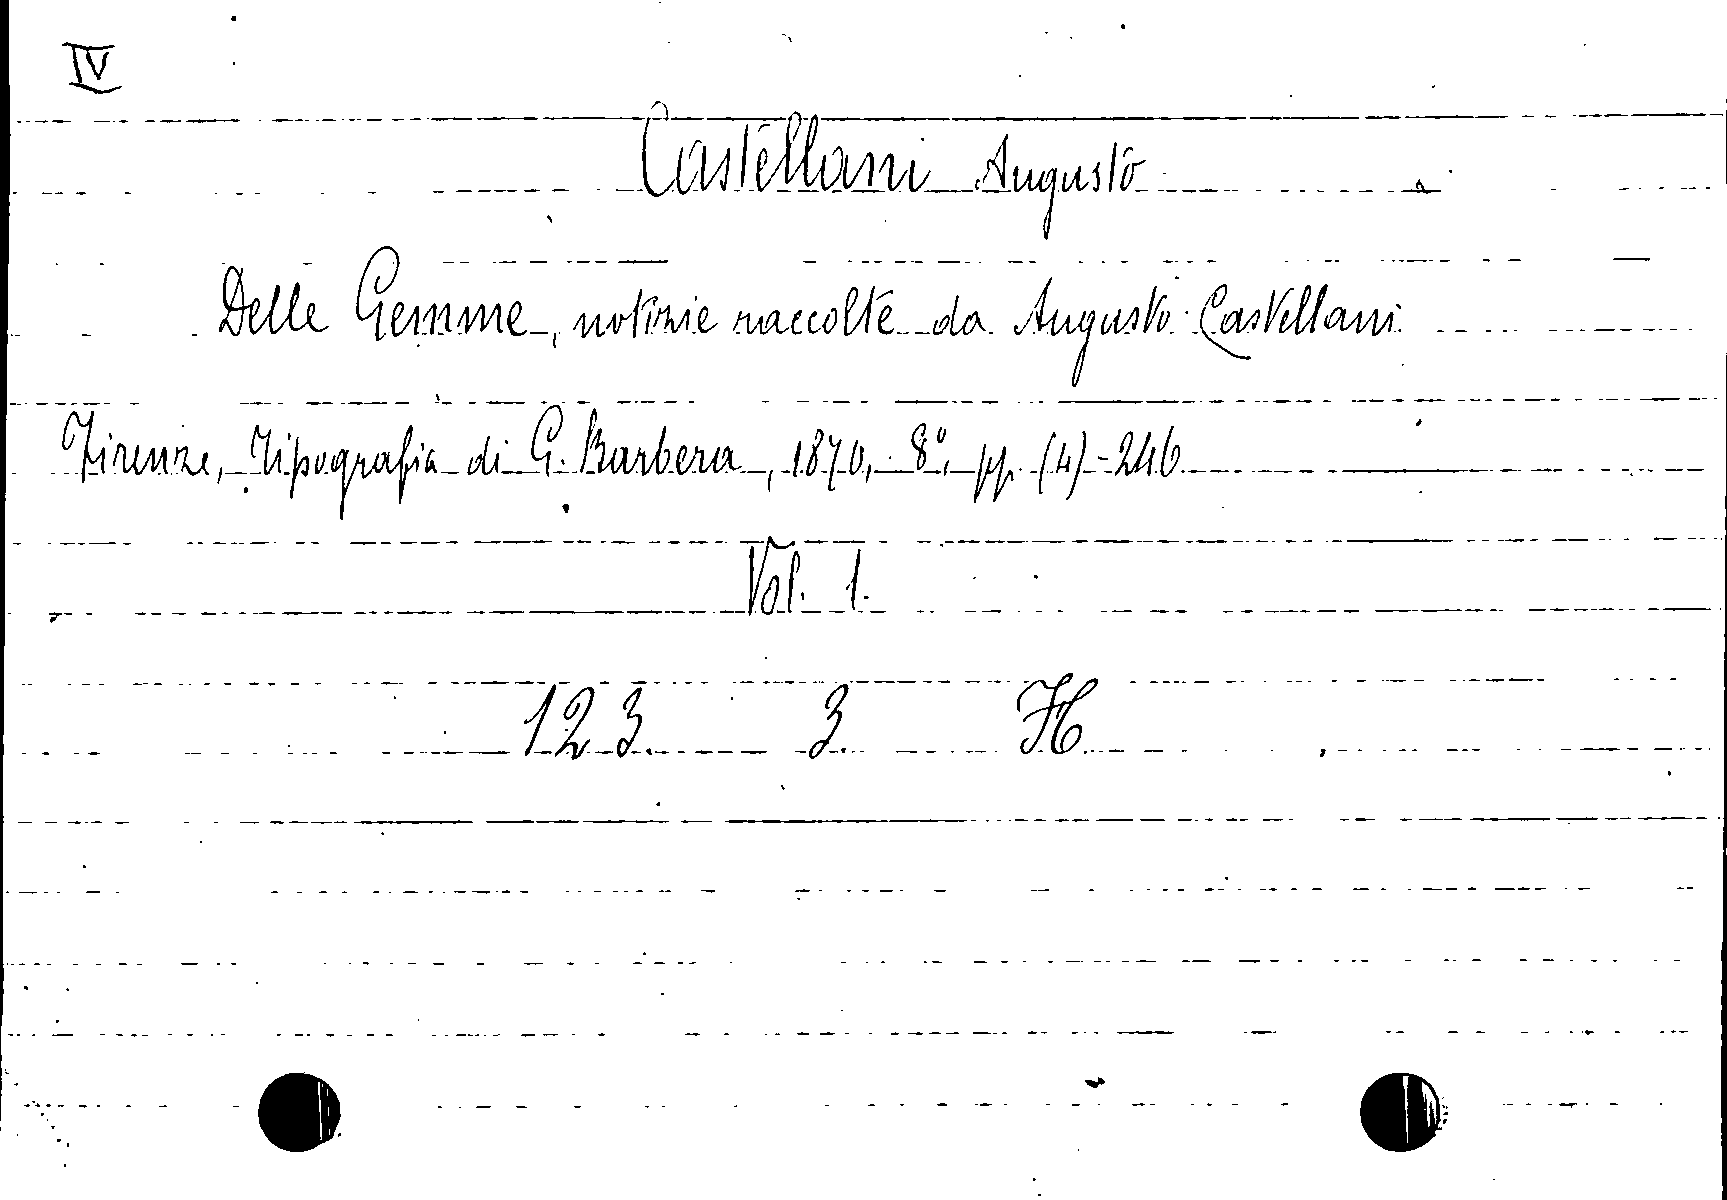 IV
Castellani Augusto
Delle Gemme, notizie raccolte da Augusto Castellani
Firenze, Tipografia di G. Barbera, 1870, 8°, pp. (4)-246
Vol. 1.
123. 3. H